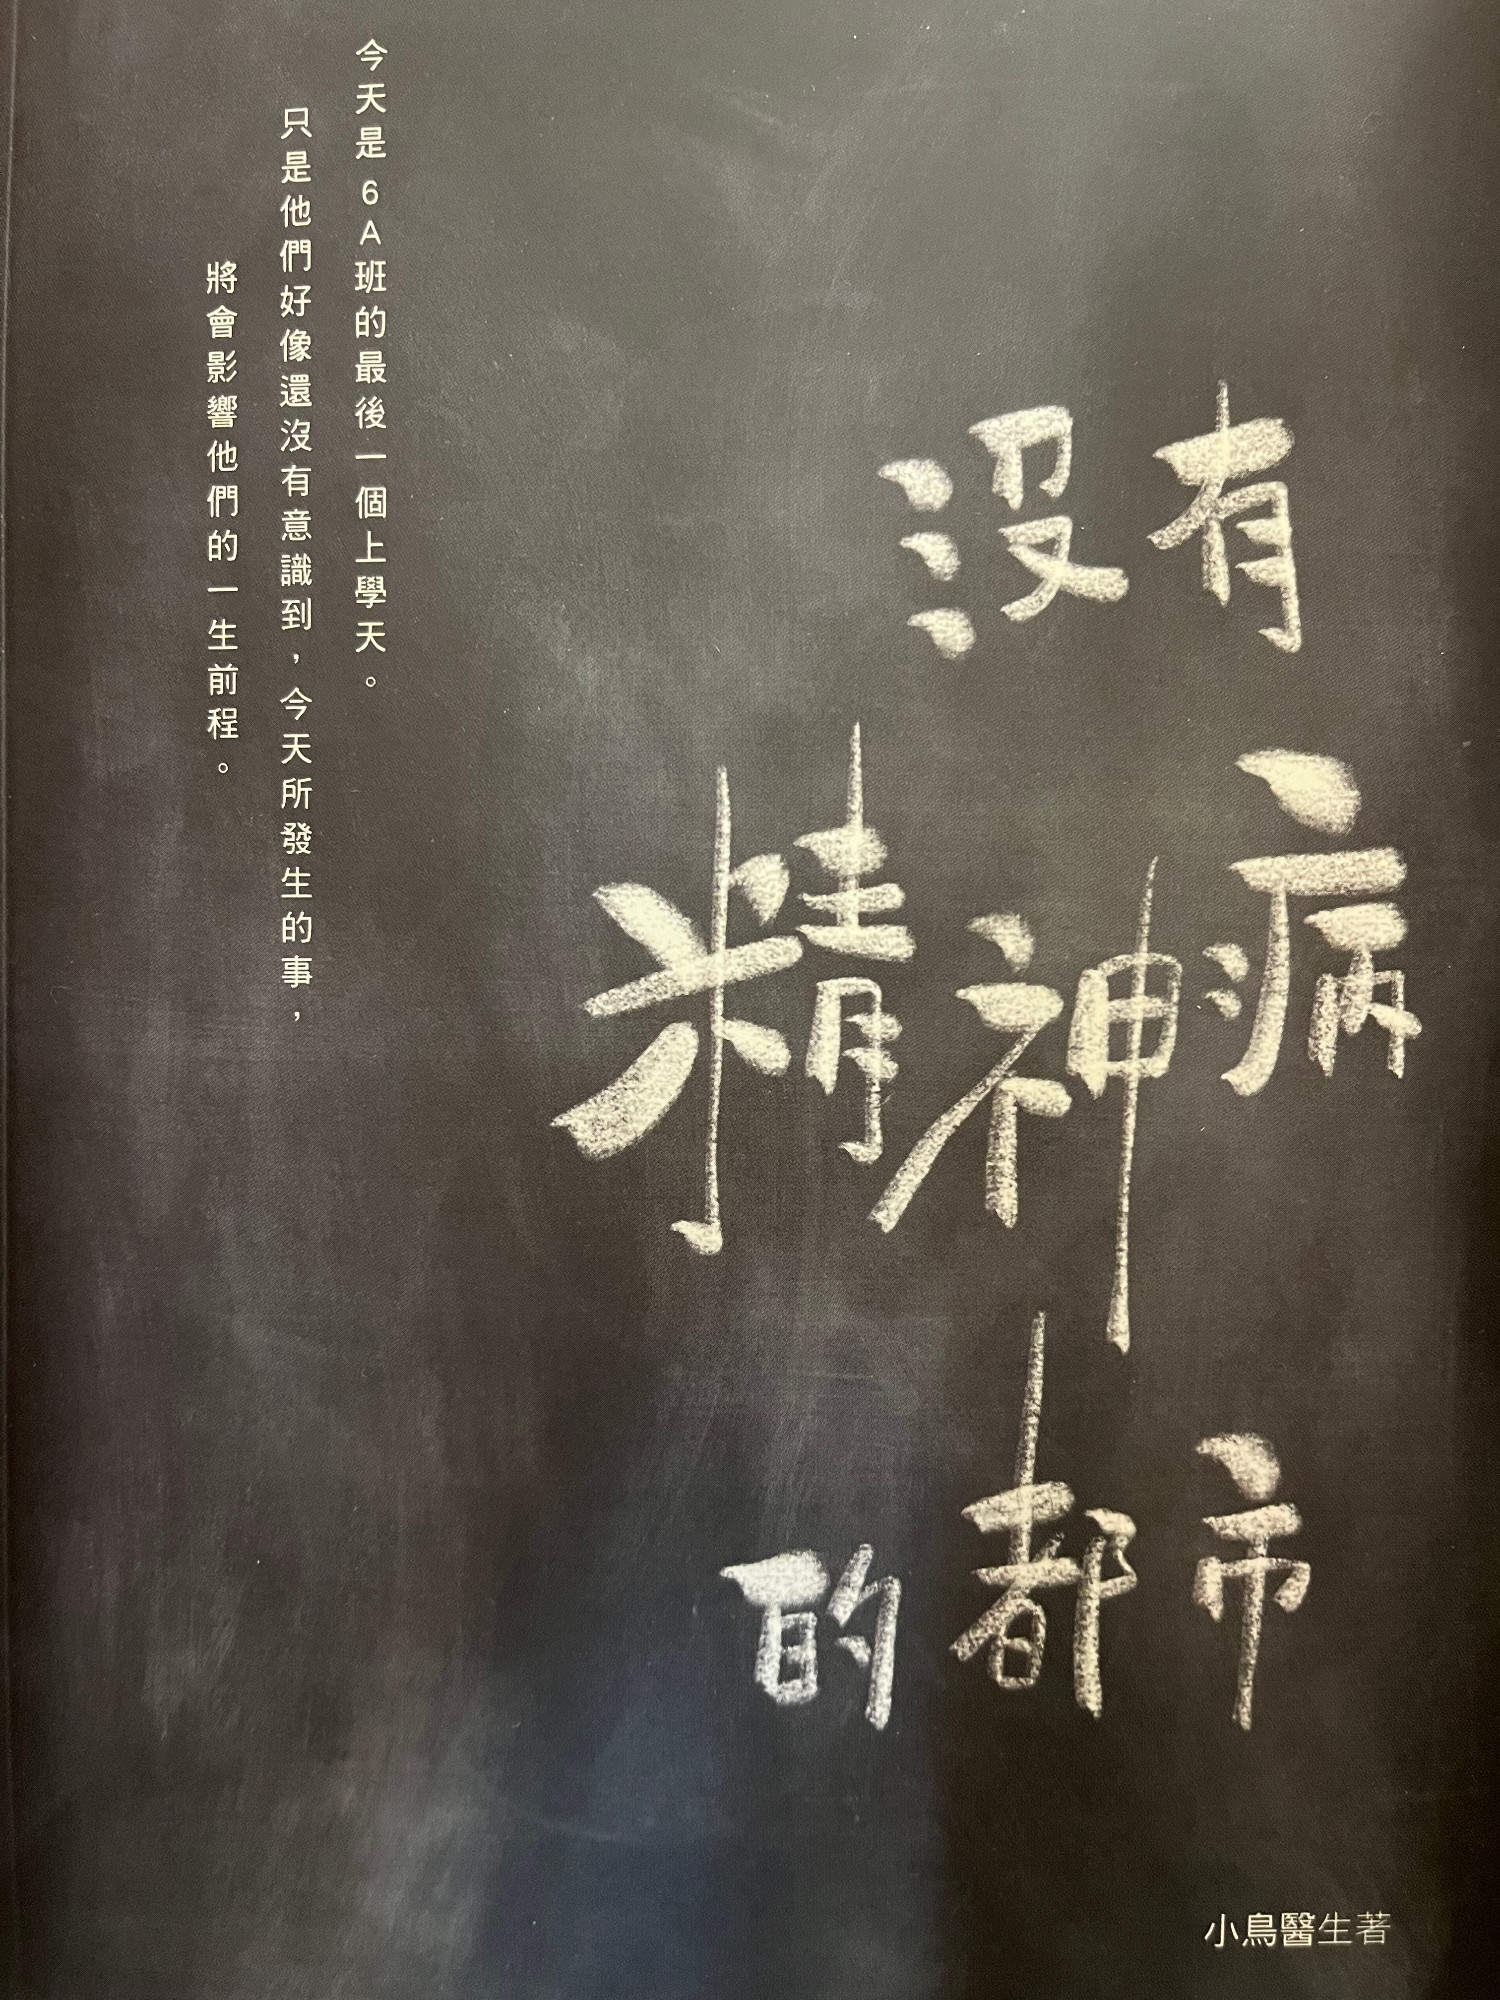 沒有
精神病
的都市
今天是6A班的最後一個上學天。
只是他們好像還沒有意識到，今天所發生的事，
將會影響他們的一生前程。
小鳥醫生著